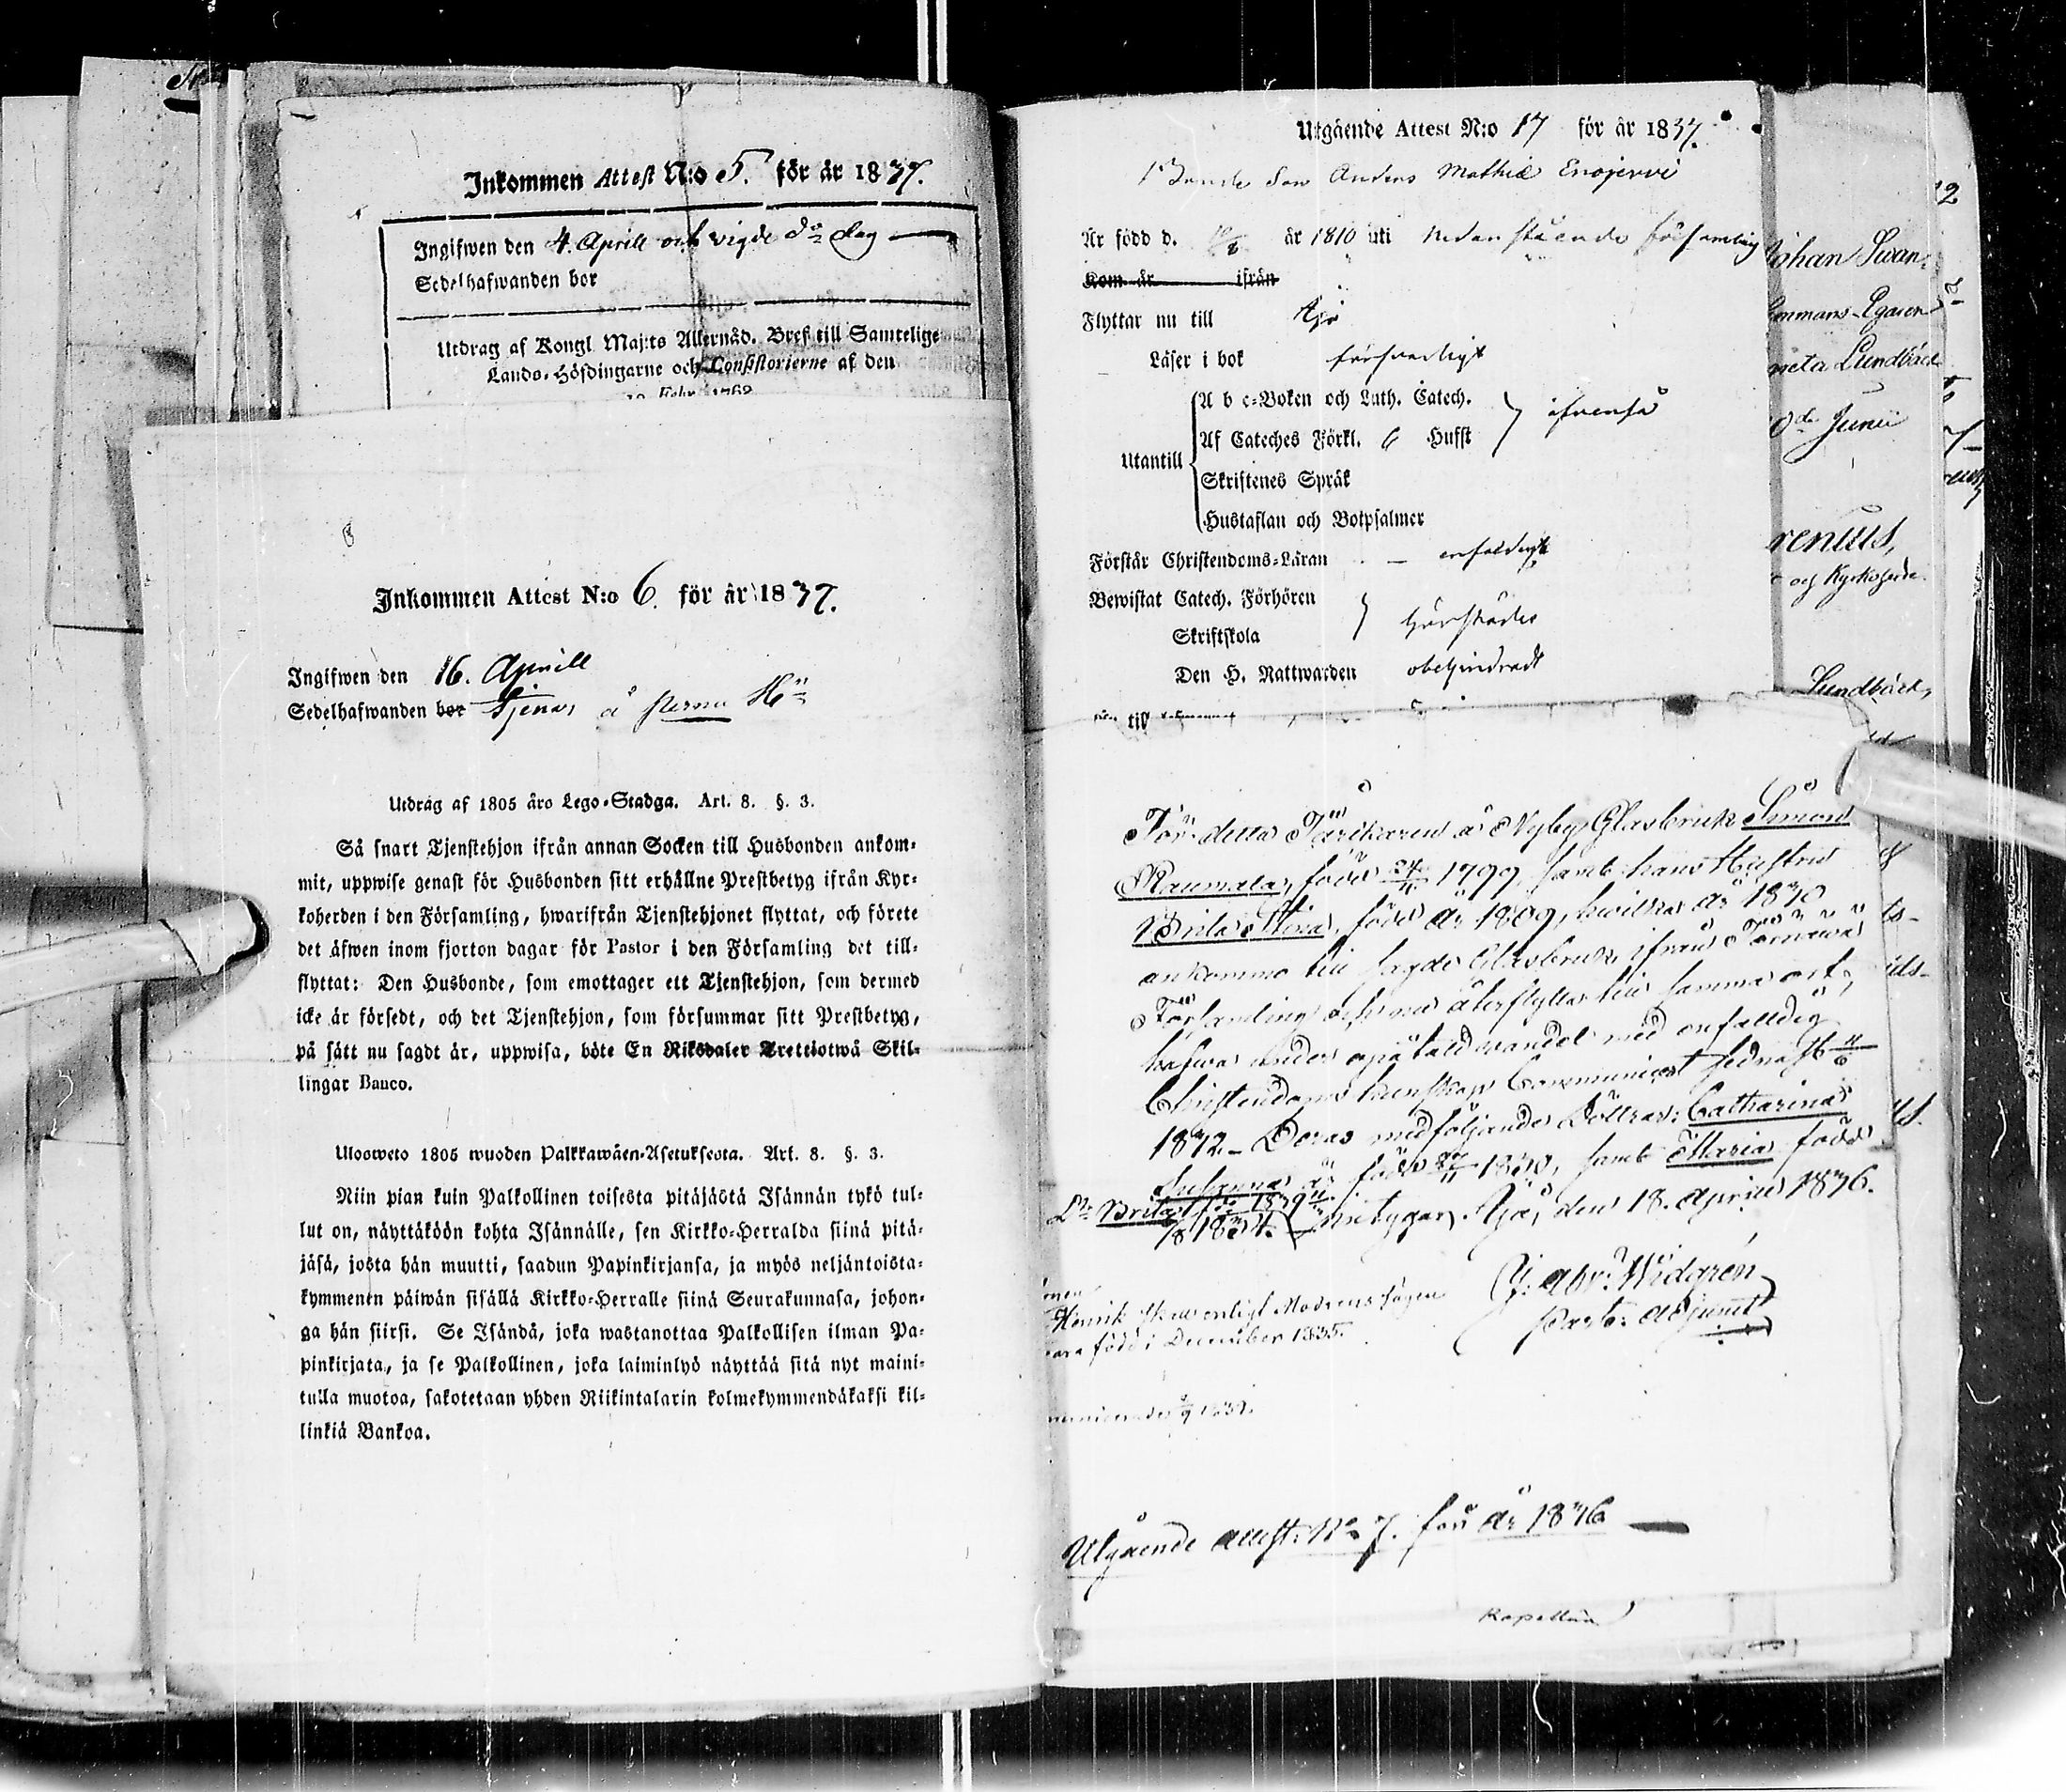 Inkommen Attest N:o 5. för år 1837.
Ingifwen den 4. Aprill och vigde do dag
Sedelhafwanden bor
Utdrag af Kongl. Maj:ts Allernåd. Bref till Samtelige
Lands-Höfdingarne och Consistorierne af den
Febr. 1762
Inkommen Attest N:o 6. för år 1837.
Ingifwen den 16. Aprill
Sedelhafwanden bor tjenar å
Utdrag af 1805 års Lego-Stadga. Art. 8. §. 3.
Så snart Tjenstehjon ifrån annan Socken till Husbonden ankom-
mit, uppwise genast för Husbonden sitt erhållne Prestbetyg ifrån Kyr-
koherden i den Församling, hwarifrån Tjenstehjonet flyttat, och förete
det äfwen inom fjorton dagar för Pastor i den Församling det till-
flyttat: Den Husbonde, som emottager ett Tjenstehjon, som dermed
icke är försedt, och det Tjenstehjon, som försummar sitt Prestbetyg,
på sätt nu sagdt är, uppwisa, böte En Riksdaler Trettiotwå Skil-
lingar Banco.
Ulosweto 1805 wuoden Palkkawäen-Asetuksesta. Art. 8. §. 3.
Niin pian kuin Palkollinen toisesta pitäjästä Isännän tykö tul-
lut on, näyttäköön kohta Isännälle, sen Kirkko-Herralda siinä pitä-
jäsä, josta hän muutti, saadun Papinkirjansa, ja myös neljäntoista-
kymmenen päiwän sisällä Kirkko-Herralle siinä Seurakunnasa, johon-
ga hän siirsi. Se Isändä, joka wastanottaa Palkollisen ilman Pa-
pinkirjata, ja se Palkollinen, joka laiminlyö näyttää sitä nyt maini-
tulla muotoa, sakotetaan yhden Riikintalarin kolmekymmendäkaksi kil-
linkiä Bankoa.
Utgående Attest N:o 17 för år 1837.
Bonde Son Anders Mathiæ Enojervi
Är född d. år 1810 uti nedanstående församling
Kom år ifrån
Flyttar nu till Ijo
Läser i bok försvarligt
Utantill
A b c-Boken och Luth. Catech.
Af Cateches Förkl. 6 Hufst äfvenså
Skriftenes Språk
Hustaflan och Botpsalmer
Förstår Christendoms-Läran enfaldigt
Bewistat Catech. Förhören
Skriftskola härstädes
Den H. Nattwarden obehindradt
till
För detta å Nyby Glasbruk Simon
Raumala, född 24/11 1799, samt hans Hustru
Brita Stina, född år 1809, hvilka år 1830
ankommo till sagde Glasbruk ifrån
Församling och nu återflytta till samma ort,
hafva under opåtald vandel med enfaldig
Christendoms kunskap Communicerat sednast 11/6
1842. Deras medföljande Döttrar: Catharina
Susanna är född samt Maria född
Brita född 1839
1834. betygar. Ijo, den 18. Aprill 1846.
J. Abr: Widgrén
Past: Adjunct
Henrik skall enligt Modrens sägen
vara född i December 1835.
Utgående attest: No 7. för år 1846
Kapellan
Johan Swan
neta Lundbäck
Junii
renius,
och Kyrkoherde
Lundbäck,